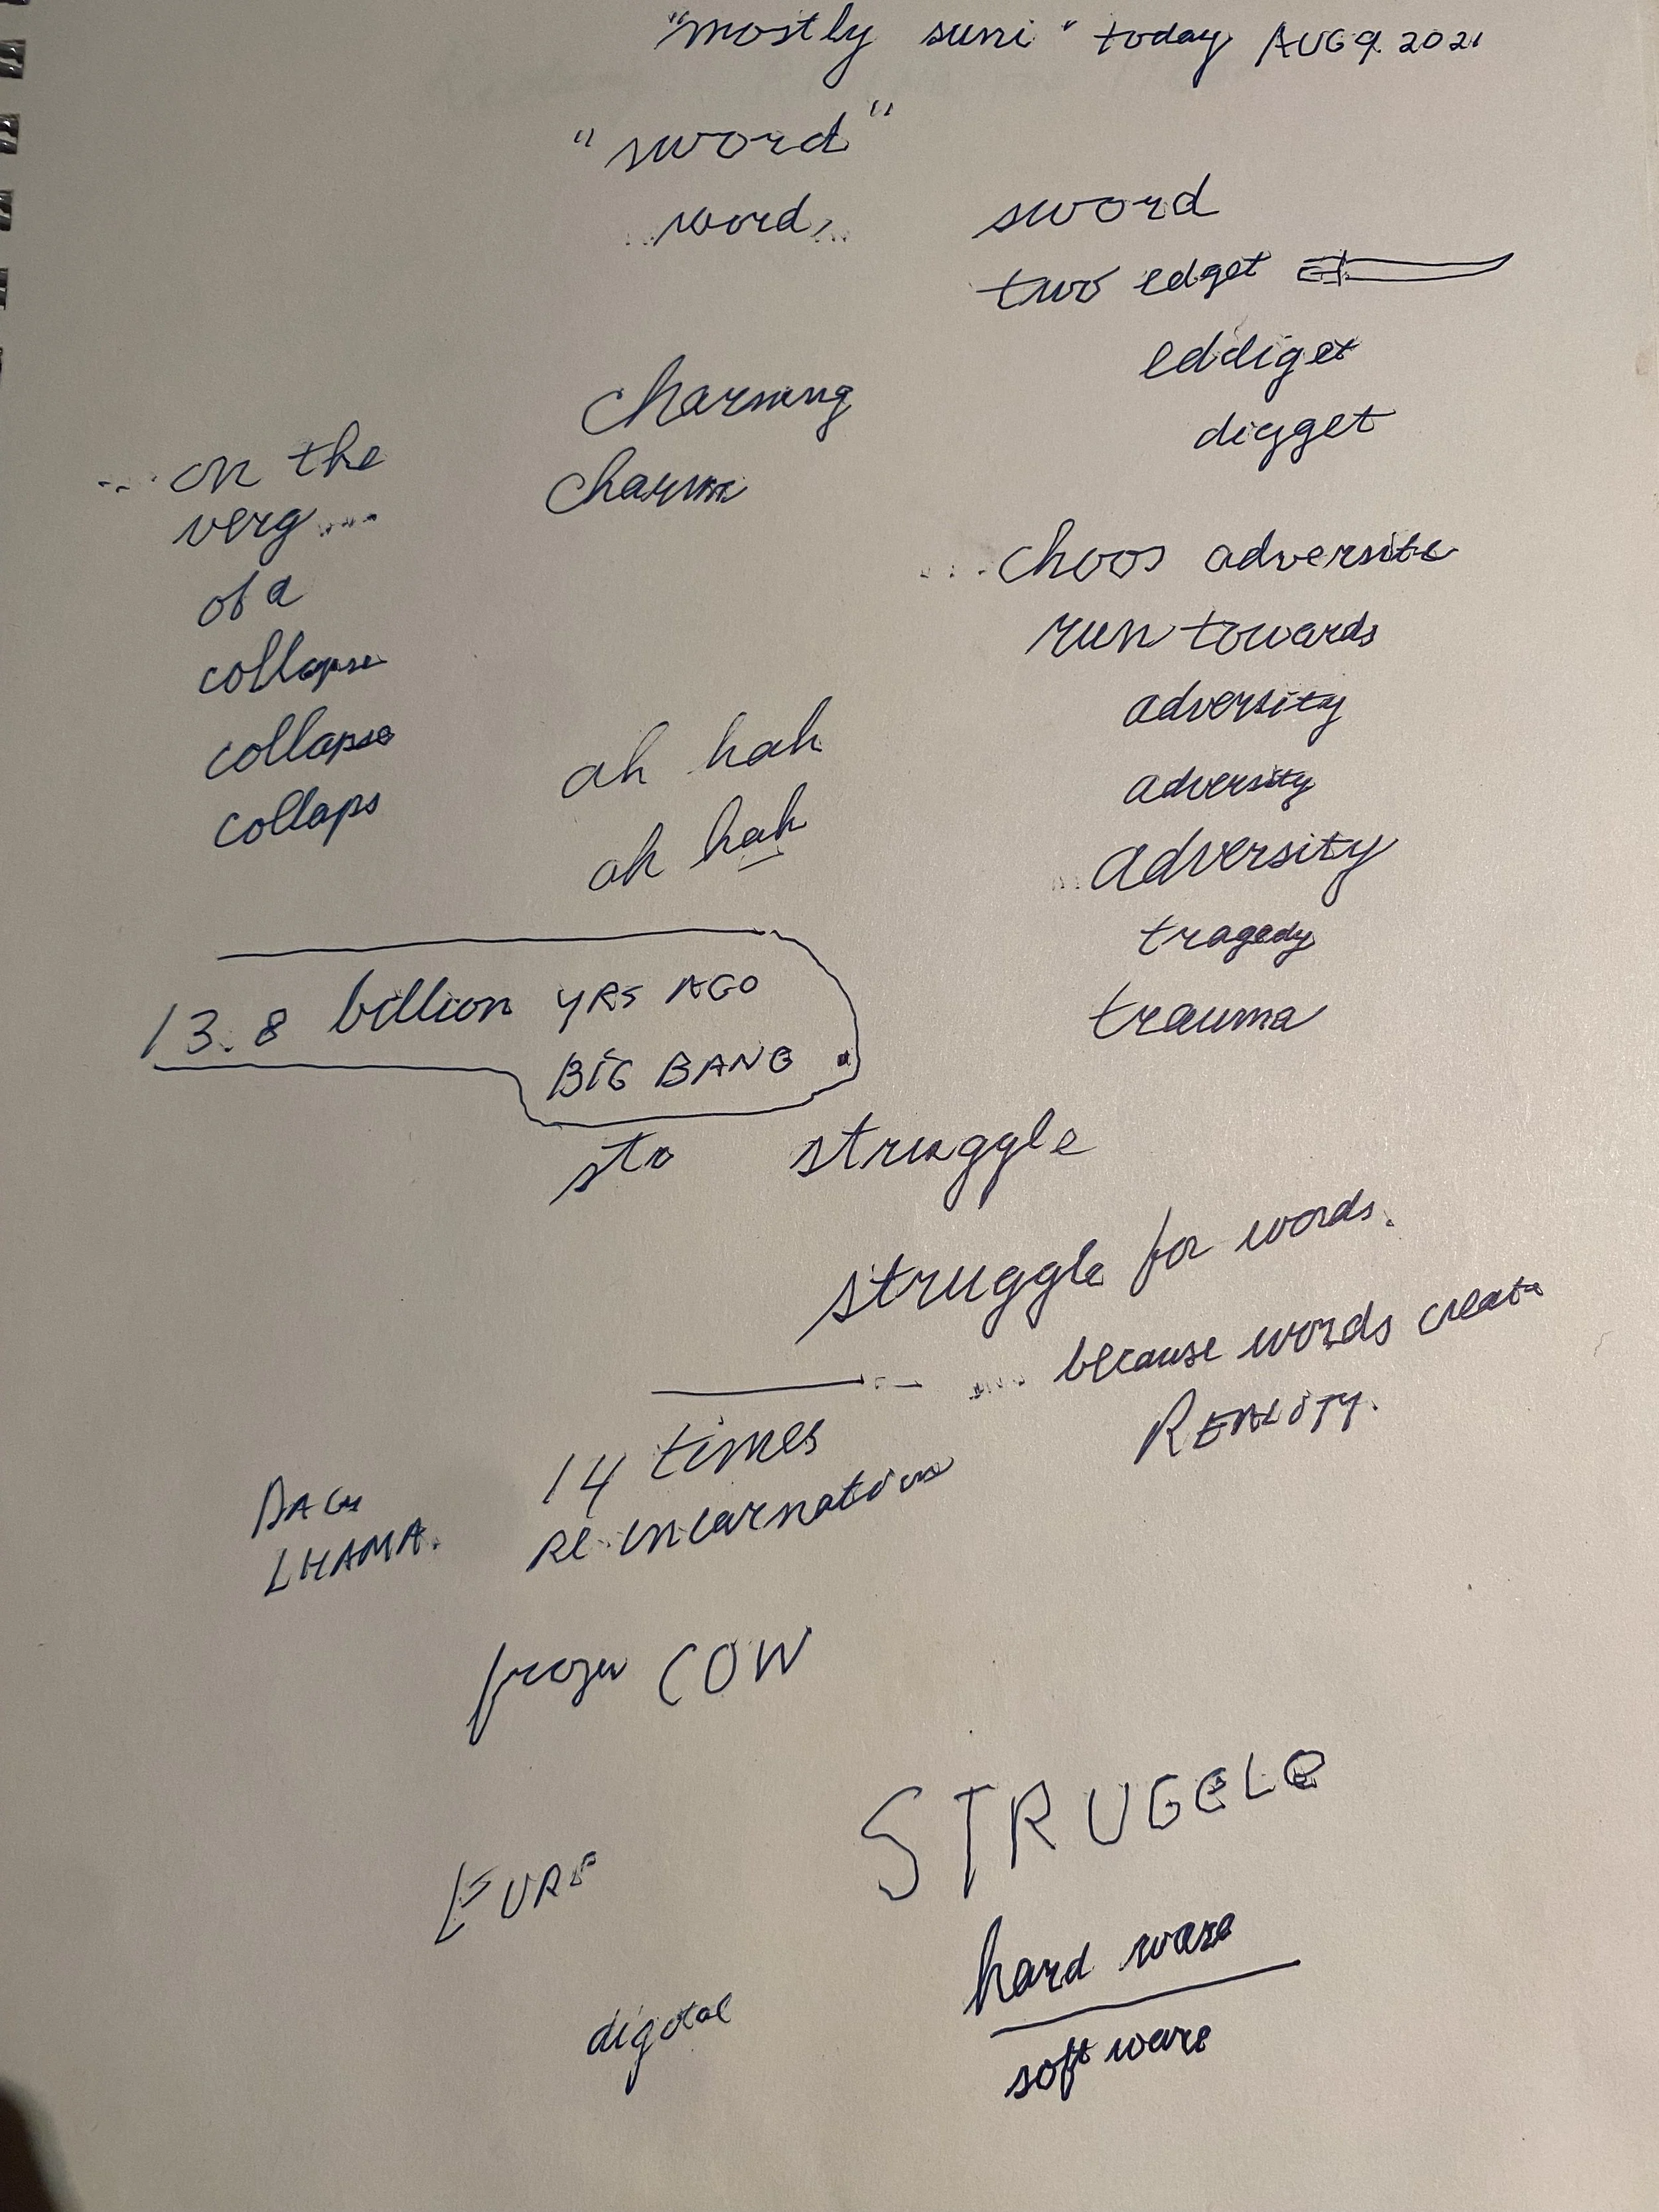 "mostly suni" today AUG 9. 2021
"sword"
word...
sword
two edget
eddiget
digget
charming
charm
... on the
verg ....
of a
collapse
collapse
collaps
... choos adversite
run towards
adversity
adversity
... adversity
tragedy
trauma
ah hah
ah hah
13.8 billion YRS AGO
BIG BANG.
str struggle
struggle for words.
.... because words create
REALITY.
14 times
re-incarnation
LHAMA.
frozen COW
STRUGGLE
hard ware
soft ware
digital